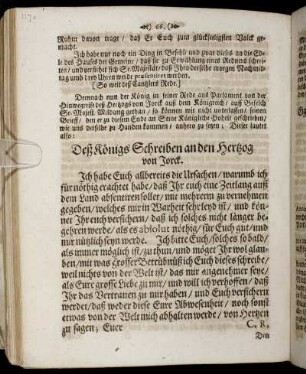 Ruhm davon trage / daß Er Euch zum glückseligsten Volck gemacht.
Ich habe nur noch ein Ding in Befehl und zwar dieses an die Edle
des Hauses der Gemeine / daß sie zu Erwählung eines Redners schreiten
/ und versichert sich Se. Majestät daß Ihro derselbe morgen Nachmittag
umb
[So weit deß Cantzlers Rede.]
Demnach nun der König in seiner Rede ans Parlament von der
Hinwegreiß deß Hertzogs von Jorck auß dem Königreich / auß Befelch
Sr. Majest. Meldung gethan / so können wir nicht
Brieff / den er zu diesem Ende an Seine Königliche Hoheit geschrieben /
wie uns derselbe zu Handen kommen / anhero zu setzen; Dieser lautet
also:
Deß Königs Schreiben an den Hertzog
von Jorck.
Ich habe Euch allbereits die Ursachen / warumb ich
für nöthig erachtet habe / daß Ihr euch eine Zeitlang auß
dem Land absentiren sollet / mit mehrerm zu vernehmen
gegeben / welches mir in Warheit sehr leyd ist / und könnet
Ihr euch versichern / daß ich solches nicht länger begehren
werde / als es absolut nöthig / für Euch gut / und
mir nützlich seyn werde. Ich bitte Euch / solches so bald /
als immer möglich ist / zu thun / und möget Ihr wol glauben
/ mit was grosser Betrübnüß ich Euch dieses schreibe /
weil nichts von der Welt ist / das mir angenehmer seye /
als Eure grosse Liebe zu mir / und will ich verhoffen / daß
Ihr das Vertrauen zu mir haben / und Euch versichern
werdet / daß weder diese Eure Abwesenheit / noch sonst
etwas von der Welt mich abhalten werde / von Hertzen
zu sagen / Euer
C. R.
Den